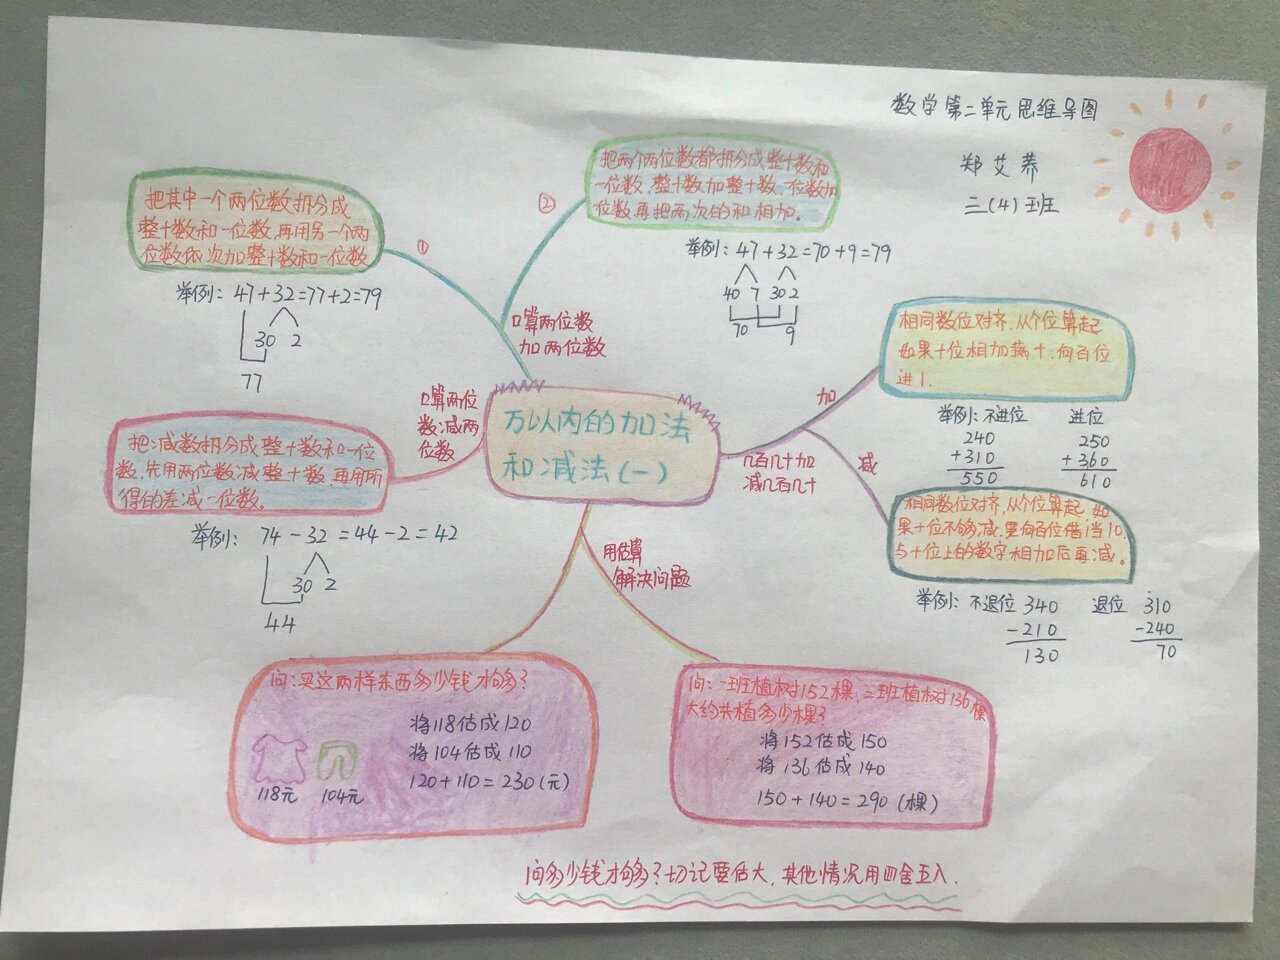 数学第二单元思维导图
郑艾养
三(4)班
万以内的加法
和减法(一)
口算两位数
加两位数
①
把其中一个两位数拆分成
整十数和一位数,再用另一个两
位数依次加整十数和一位数
举例: 47+32=77+2=79
30 2
77
②
把两个两位数都拆分成整十数和
一位数,整十数加整十数,一位数加一
位数,再把两次的和相加。
举例: 47+32=70+9=79
40 7 30 2
70 9
口算两位
数减两
位数
把减数拆分成整十数和一位
数,先用两位数减整十数,再用所
得的差减一位数。
举例: 74-32=44-2=42
30 2
44
几百几十加
减几百几十
加
相同数位对齐,从个位算起
如果十位相加满十,向百位
进1.
举例: 不进位 进位
240 250
+310 +360
550 610
减
相同数位对齐,从个位算起,如
果十位不够减,要向百位借1当10,
与十位上的数字相加后再减。
举例: 不退位 340 退位 310
-210 -240
130 70
用估算
解决问题
问:买这两样东西多少钱才够?
将118估成120
将104估成110
120+110=230(元)
118元 104元
问:一班植树152棵,二班植树136棵
大约共植多少棵?
将152估成150
将136估成140
150+140=290 (棵)
问多少钱才够?切记要估大,其他情况用四舍五入.